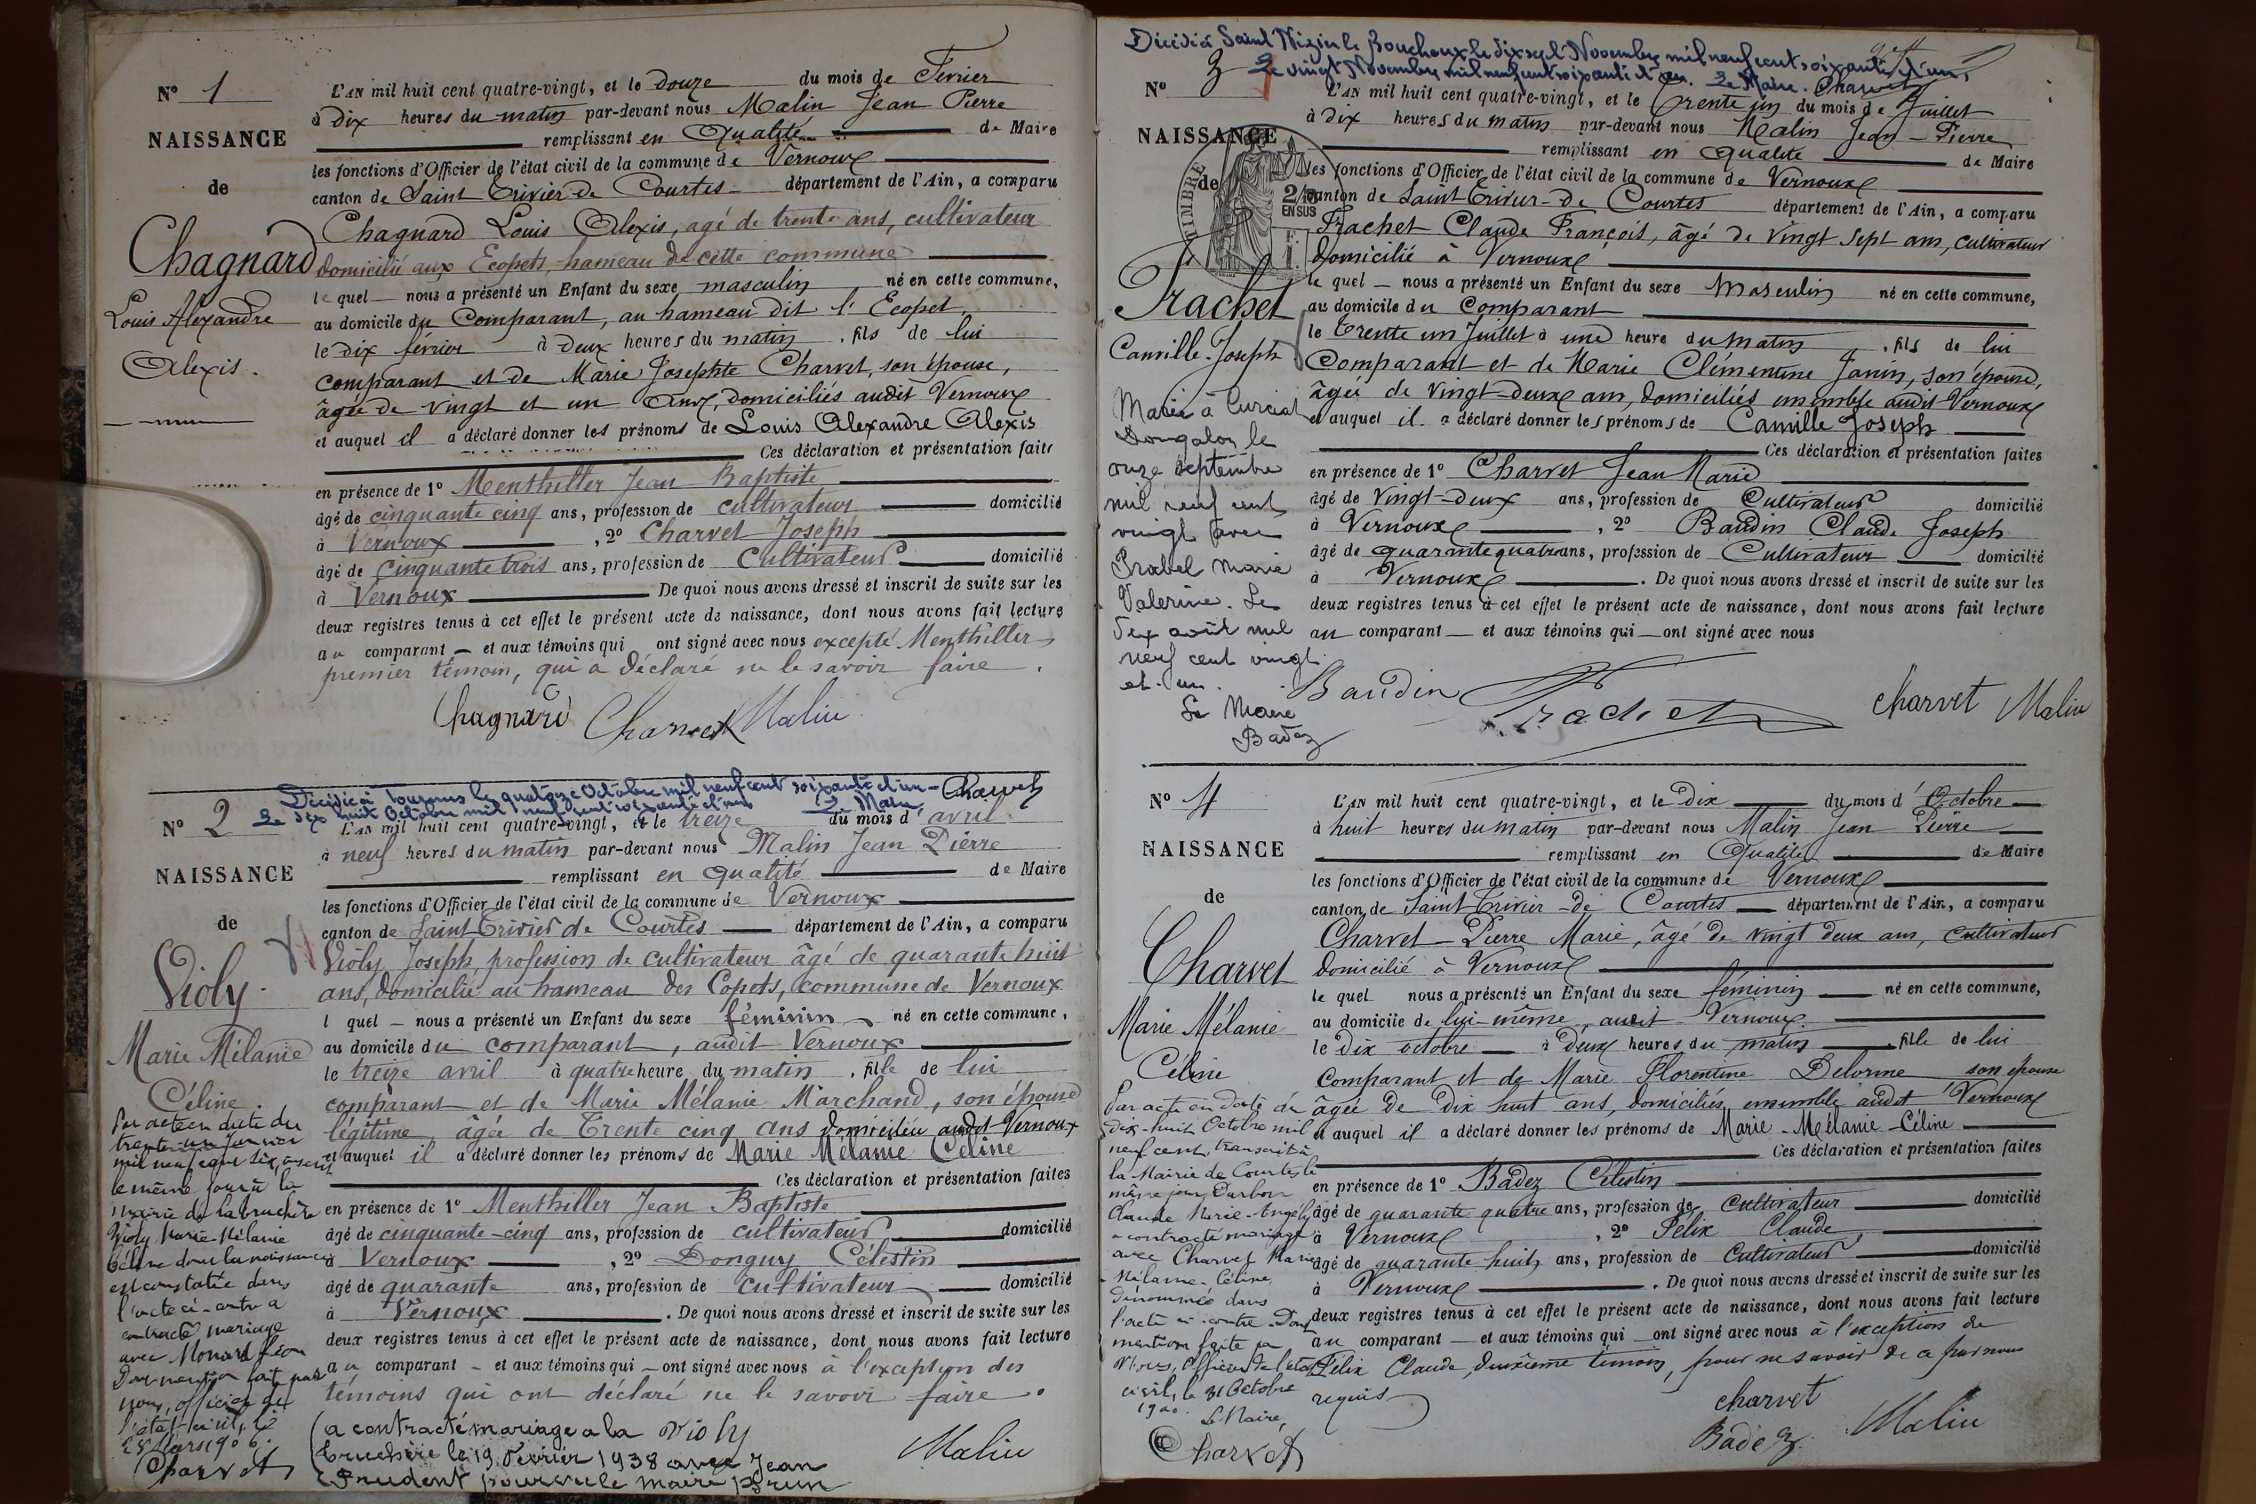 N° 1
NAISSANCE
de
Chagnard
Louis Alexandre
Alexis.
L'AN mil huit cent quatre-vingt, et le douze du mois de Février
à dix heures du matin par-devant nous Malin Jean Pierre
remplissant en Qualité de Maire
les fonctions d'Officier de l'état civil de la commune de Vernoux
canton de Saint Trivier de Courtes département de l'Ain, a comparu
Chagnard Louis Alexis, agé de trente ans, cultivateur
domicilié aux Ecopets, hameau de cette commune
le quel nous a présenté un Enfant du sexe masculin né en cette commune,
au domicile du Comparant, au hameau dit l'Ecopet,
le dix février à deux heures du matin, fils de lui
comparant et de Marie Josephte Charvet, son épouse,
âgée de vingt et un Ans, domiciliés audit Vernoux
et auquel il a déclaré donner les prénoms de Louis Alexandre Alexis
Ces déclaration et présentation faites
en présence de 1° Menthiller Jean Baptiste
âgé de cinquante cinq ans, profession de cultivateur domicilié
à Vernoux, 2° Charvet Joseph
âgé de cinquante trois ans, profession de Cultivateur domicilié
à Vernoux De quoi nous avons dressé et inscrit de suite sur les
deux registres tenus à cet effet le présent acte de naissance, dont nous avons fait lecture
au comparant et aux témoins qui ont signé avec nous excepté Menthiller
premier témoin, qui a déclaré ne le savoir faire.
Chagnard Charvet Malin
Décédée à Tournus le quatorze Octobre mil neuf cent soixante et un - Charvet
Le dix huit Octobre mil neuf cent soixante et un Le Maire
N° 2
NAISSANCE
de
Violy.
Marie Mélanie
Céline.
Par acte en date du
trente-un Janvier
mil neuf cent six, inscrit
le même jour à la
Mairie de la Truchère
Violy Marie-Mélanie
Céline dont la naissance
est constatée dans
l'acte ci-contre a
contracté mariage
avec Monard Léon
Dont mention faite par
nous, officier de
l'état-civil, le
28 Mars 1906.
Charvet
L'AN mil huit cent quatre-vingt, et le treize du mois d'avril
à neuf heures du matin par-devant nous Malin Jean Pierre
remplissant en qualité de Maire
les fonctions d'Officier de l'état civil de la commune de Vernoux
canton de Saint Trivier de Courtes département de l'Ain, a comparu
Violy Joseph, profession de cultivateur âgé de quarante huit
ans, domicilié au hameau des Copets, commune de Vernoux
l quel nous a présenté un Enfant du sexe féminin né en cette commune,
au domicile du comparant, audit Vernoux
le treize avril à quatre heure du matin, fille de lui
comparant et de Marie Mélanie Marchand, son épouse
légitime, âgée de Trente cinq ans domiciliée audit Vernoux
et auquel il a déclaré donner les prénoms de Marie Mélanie Céline
Ces déclaration et présentation faites
en présence de 1° Menthiller Jean Baptiste
âgé de cinquante-cinq ans, profession de cultivateur domicilié
à Vernoux, 2° Donguy Célestin
âgé de quarante ans, profession de cultivateur domicilié
à Vernoux. De quoi nous avons dressé et inscrit de suite sur les
deux registres tenus à cet effet le présent acte de naissance, dont nous avons fait lecture
au comparant et aux témoins qui ont signé avec nous à l'exception des
témoins qui ont déclaré ne le savoir faire.
Violy Malin
a contracté mariage a la
Truchère le 19 Février 1938 avec Jean
Prudent pour le maire Brun
Décédé à Saint Nizier le Bouchoux le dix sept Novembre mil neuf cent soixante et un,
Le vingt Novembre mil neuf cent soixante et un. Le Maire. Charvet
N° 3
NAISSANCE
de
TIMBRE
2/10
EN SUS
Frachet
Camille-Joseph
Marié à Curciat
Dongalon le
onze septembre
mil neuf cent
vingt avec
Prabel Marie
Valerine. Le
dix août mil
neuf cent vingt
et un.
Le Maire
Badez
L'AN mil huit cent quatre-vingt, et le Trente un du mois de Juillet
à Dix heures du matin par-devant nous Malin Jean-Pierre
remplissant en qualité de Maire
les fonctions d'Officier de l'état civil de la commune de Vernoux
canton de Saint-Trivier-de Courtes département de l'Ain, a comparu
Frachet Claude François, âgé de vingt sept ans, cultivateur
domicilié à Vernoux
le quel nous a présenté un Enfant du sexe Masculin né en cette commune,
au domicile du Comparant
le trente un Juillet à une heure du matin, fils de lui
Comparant et de Marie Clémentine Janin, son épouse,
âgée de vingt-deux ans, domiciliés ensemble audit Vernoux
et auquel il a déclaré donner les prénoms de Camille Joseph
Ces déclaration et présentation faites
en présence de 1° Charvet Jean Marie
âgé de vingt-deux ans, profession de Cultivateur domicilié
à Vernoux, 2° Baudin Claude Joseph
âgé de quarante quatre ans, profession de Cultivateur domicilié
à Vernoux. De quoi nous avons dressé et inscrit de suite sur les
deux registres tenus à cet effet le présent acte de naissance, dont nous avons fait lecture
au comparant et aux témoins qui ont signé avec nous
Baudin Frachet charvet Malin
N° 4
NAISSANCE
de
Charvet
Marie Mélanie
Céline
Par acte en date du
dix-huit Octobre mil
neuf cent, transcrit à
la Mairie de Courtes le
même jour, Darbon
Claude Marie-Angély
a contracté mariage
avec Charvet Marie
Mélanie-Céline,
dénommée dans
l'acte ci-contre. Dont
mention faite par
Nous, Officier de l'état
civil, le 31 Octobre
1900.
Le Maire,
Charvet
L'AN mil huit cent quatre-vingt, et le Dix du mois d'Octobre
à huit heures du matin par-devant nous Malin Jean Pierre
remplissant en Qualité de Maire
les fonctions d'Officier de l'état civil de la commune de Vernoux
canton de Saint Trivier-de Courtes département de l'Ain, a comparu
Charvet-Pierre Marie, âgé de vingt deux ans, cultivateur
domicilié à Vernoux
le quel nous a présenté un Enfant du sexe féminin né en cette commune,
au domicile de lui-même, audit Vernoux.
le dix octobre à deux heures du matin, fille de lui
Comparant et de Marie Florentine Delorme son épouse
âgée de dix huit ans, domiciliés ensemble audit Vernoux
et auquel il a déclaré donner les prénoms de Marie-Mélanie-Céline
Ces déclaration et présentation faites
en présence de 1° Badez Célestin
âgé de quarante quatre ans, profession de Cultivateur domicilié
à Vernoux, 2° Félix Claude,
âgé de quarante-huit ans, profession de Cultivateur domicilié
à Vernoux. De quoi nous avons dressé et inscrit de suite sur les
deux registres tenus à cet effet le présent acte de naissance, dont nous avons fait lecture
au comparant et aux témoins qui ont signé avec nous à l'exception de
Félix Claude, deuxième témoin, pour ne savoir de ce par nous
requis
charvet
Badez Malin